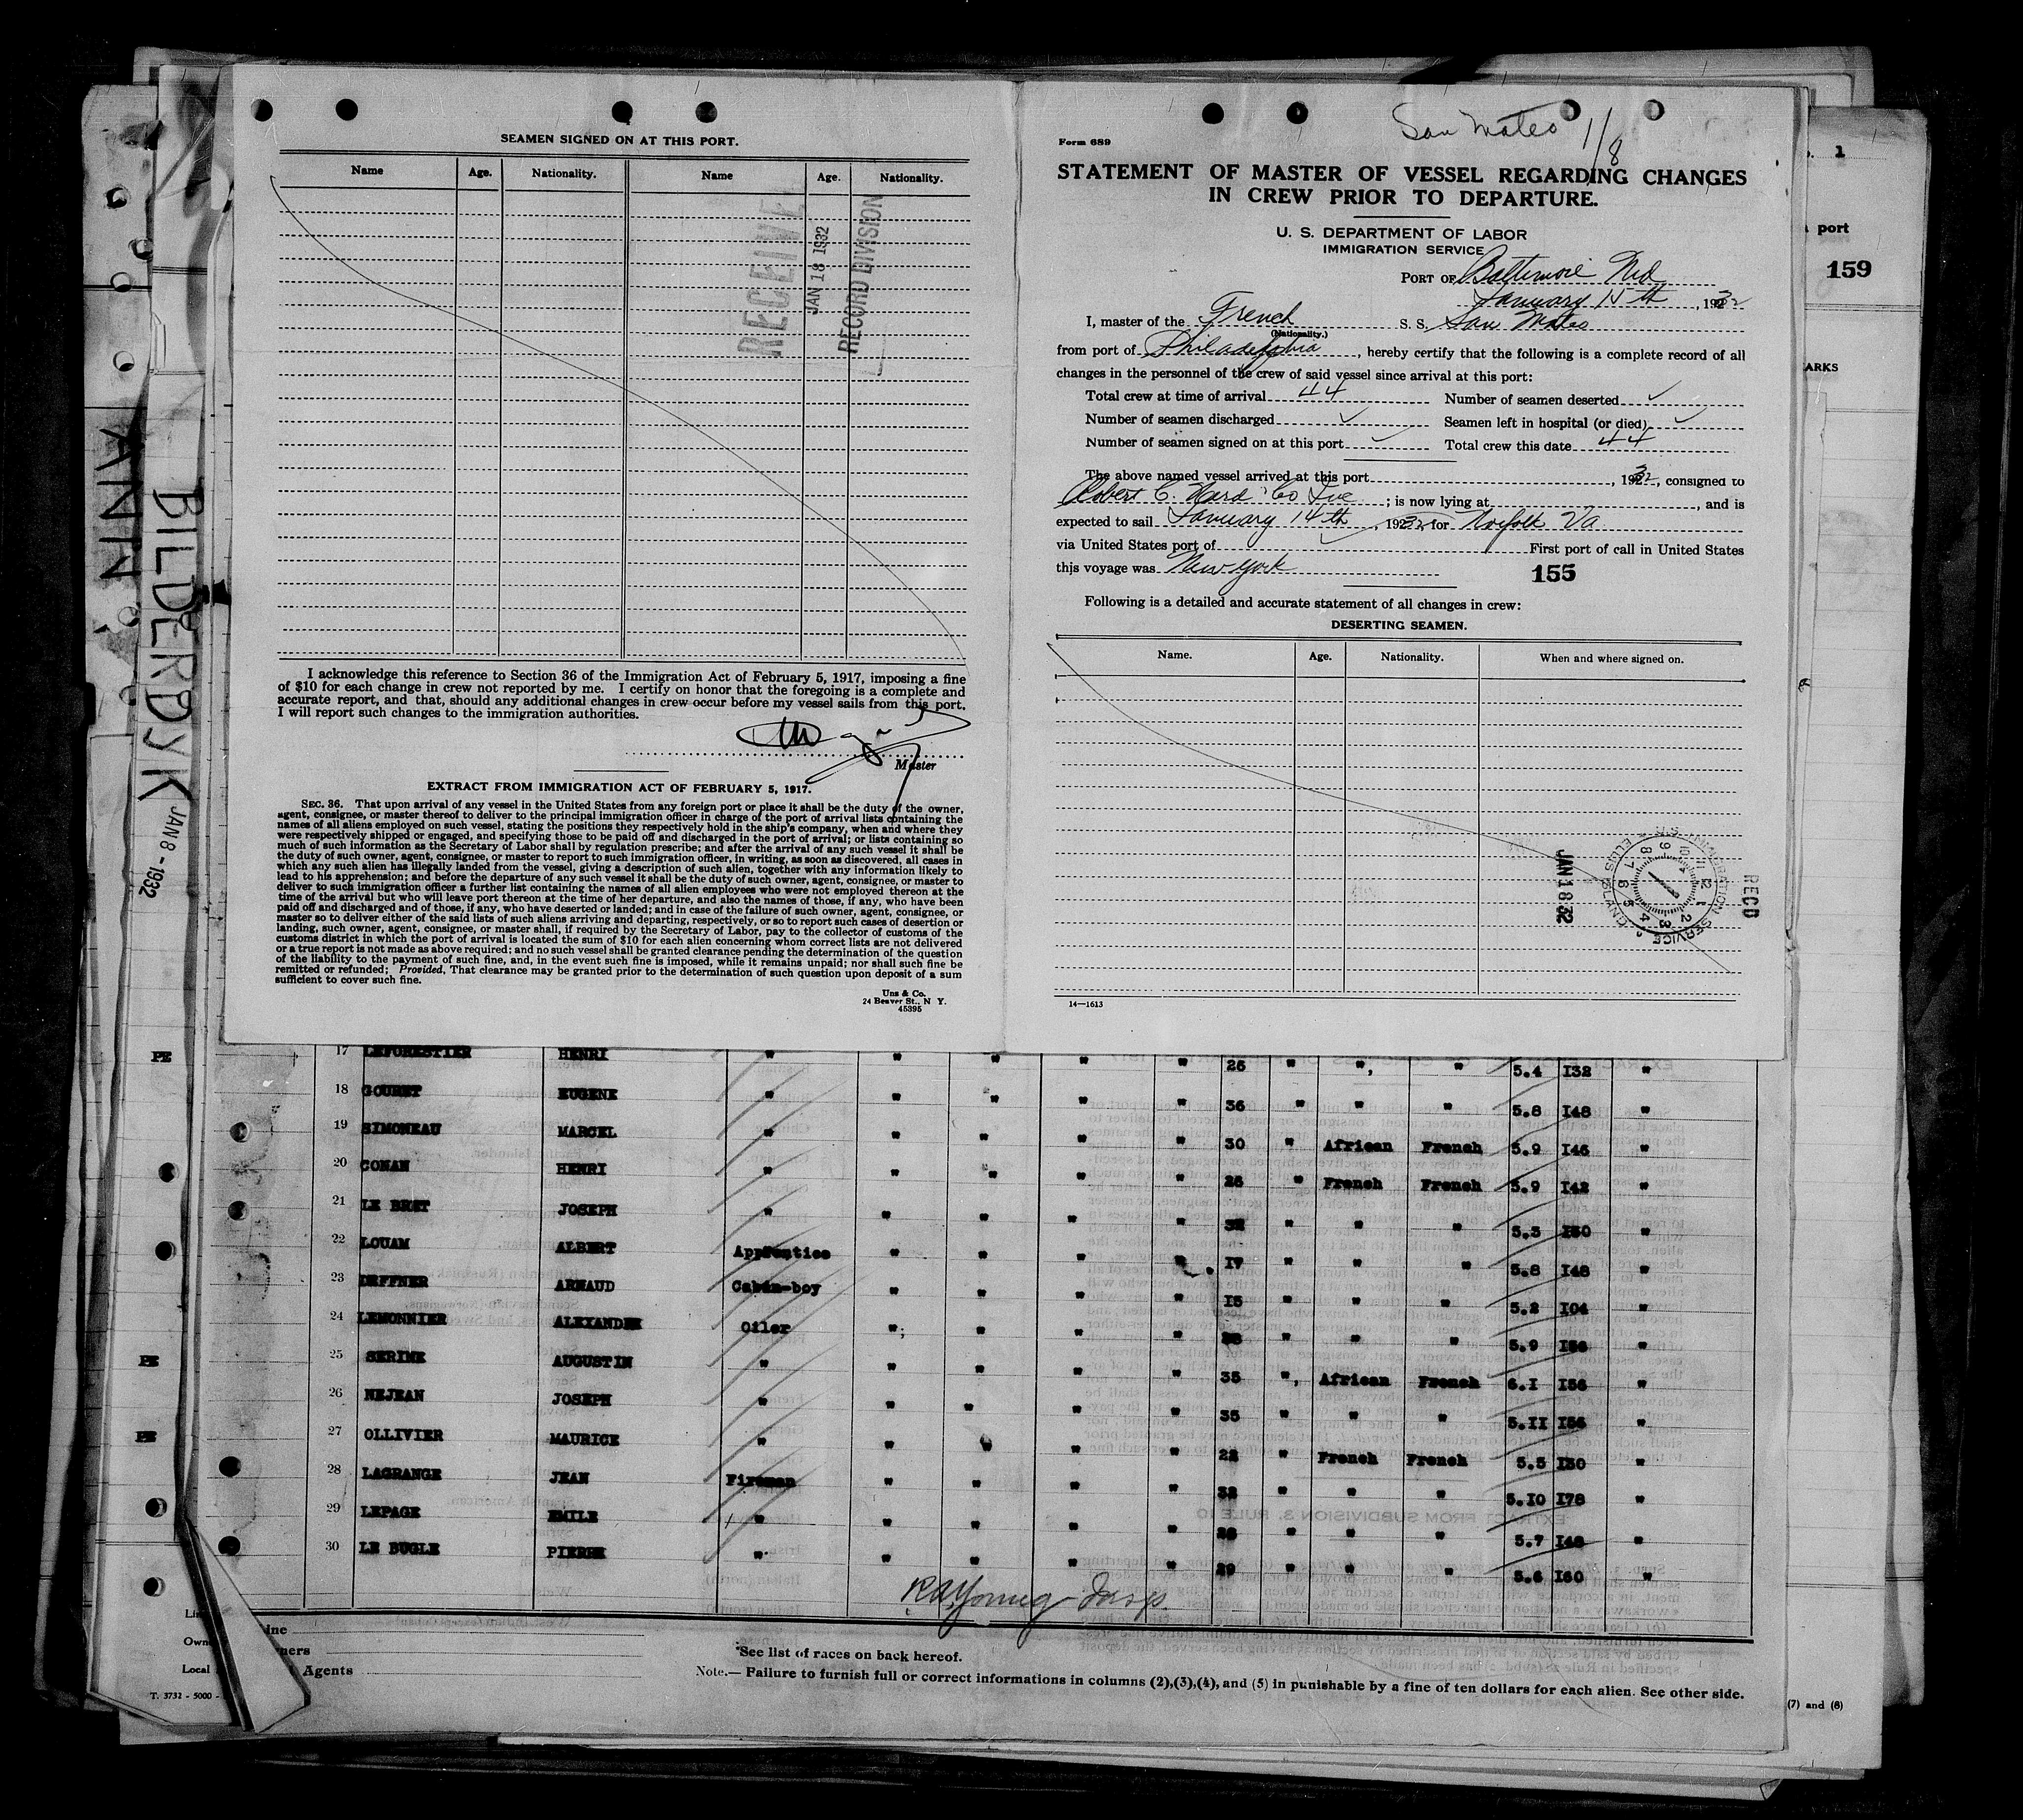 SEAMEN SIGNED ON AT THIS PORT.
Name Age. Nationality. Name Age. Nationality.
RECEIVED
JAN 18 1932
RECORD DIVISION
I acknowledge this reference to Section 36 of the Immigration Act of February 5, 1917, imposing a fine
of $10 for each change in crew not reported by me. I certify on honor that the foregoing is a complete and
accurate report, and that, should any additional changes in crew occur before my vessel sails from this port,
I will report such changes to the immigration authorities.
Master
EXTRACT FROM IMMIGRATION ACT OF FEBRUARY 5, 1917.
SEC. 36. That upon arrival of any vessel in the United States from any foreign port or place it shall be the duty of the owner,
agent, consignee, or master thereof to deliver to the principal immigration officer in charge of the port of arrival lists containing the
names of all aliens employed on such vessel, stating the positions they respectively hold in the ship's company, when and where they
were respectively shipped or engaged, and specifying those to be paid off and discharged in the port of arrival; or lists containing so
much of such information as the Secretary of Labor shall by regulation prescribe; and after the arrival of any such vessel it shall be
the duty of such owner, agent, consignee, or master to report to such immigration officer, in writing, as soon as discovered, all cases in
which any such alien has illegally landed from the vessel, giving a description of such alien, together with any information likely to
lead to his apprehension; and before the departure of any such vessel it shall be the duty of such owner, agent, consignee, or master to
deliver to such immigration officer a further list containing the names of all alien employees who were not employed thereon at the
time of the arrival but who will leave port thereon at the time of her departure, and also the names of those, if any, who have been
paid off and discharged and of those, if any, who have deserted or landed; and in case of the failure of such owner, agent, consignee, or
master so to deliver either of the said lists of such aliens arriving and departing, respectively, or so to report such cases of desertion or
landing, such owner, agent, consignee, or master shall, if required by the Secretary of Labor, pay to the collector of customs of the
customs district in which the port of arrival is located the sum of $10 for each alien concerning whom correct lists are not delivered
or a true report is not made as above required; and no such vessel shall be granted clearance pending the determination of the question
of the liability to the payment of such fine, and, in the event such fine is imposed, while it remains unpaid; nor shall such fine be
remitted or refunded; Provided, That clearance may be granted prior to the determination of such question upon deposit of a sum
sufficient to cover such fine.
Uns & Co.
24 Beaver St., N Y.
45395
San Mateo 1/8
Form 689
STATEMENT OF MASTER OF VESSEL REGARDING CHANGES
IN CREW PRIOR TO DEPARTURE.
U. S. DEPARTMENT OF LABOR
IMMIGRATION SERVICE
PORT OF Baltimore Md
January 15th, 1932
I, master of the French S. S. San Mateo
(Nationality.)
from port of Philadelphia, hereby certify that the following is a complete record of all
changes in the personnel of the crew of said vessel since arrival at this port:
Total crew at time of arrival 44 Number of seamen deserted ✓
Number of seamen discharged ✓ Seamen left in hospital (or died) ✓
Number of seamen signed on at this port ✓ Total crew this date 44
The above named vessel arrived at this port, 1932, consigned to
Robert C. Herd Co Inc; is now lying at, and is
expected to sail January 14th, 1932, for Norfolk Va
via United States port of First port of call in United States
this voyage was New York 155
Following is a detailed and accurate statement of all changes in crew:
DESERTING SEAMEN.
Name. Age. Nationality. When and where signed on.
RECD
U.S. IMMIGRATION SERVICE
ELLIS ISLAND
JAN 18 32
14—1613
1
port
159
ARKS
ANN
BILDERDYK
JAN 8 - 1932
PE
PE
PE
17 LEFORESTIER HENRI " " " " " 26 " " " 5.4 I32 "
18 GOURET EUGENE " " " " " 36 " " " 5.8 I48 "
19 SIMONEAU MARCEL " " " " " 30 " African French 5.9 I46 "
20 CONAN HENRI " " " " " 26 " French French 5.9 I42 "
21 LE BRET JOSEPH " " " " " 32 " " " 5.3 I50 "
22 LOUAM ALBERT Apprentice " " " " I7 " " " 5.8 I48 "
23 DEFFNER ARNAUD Cabin-boy " " " " I5 " " " 5.2 I04 "
24 LEMONNIER ALEXANDRE Oiler " " " " " " " 5.9 I56 "
25 SERINE AUGUSTIN " " " " " 35 " African French 6.I I56 "
26 NEJEAN JOSEPH " " " " " 35 " " " 5.II I56 "
27 OLLIVIER MAURICE " " " " " 22 " French French 5.5 I30 "
28 LAGRANGE JEAN Fireman " " " " 32 " " " 5.I0 I78 "
29 LEPAGE EMILE " " " " " " " " 5.7 I48 "
30 LE BUGLE PIERRE " " " " " 29 " " " 5.6 I60 "
R A Young Insp.
Line
Owners
Local Agents
*See list of races on back hereof.
Note.— Failure to furnish full or correct informations in columns (2),(3),(4), and (5) in punishable by a fine of ten dollars for each alien. See other side.
T. 3732 - 5000 -
(7) and (8)